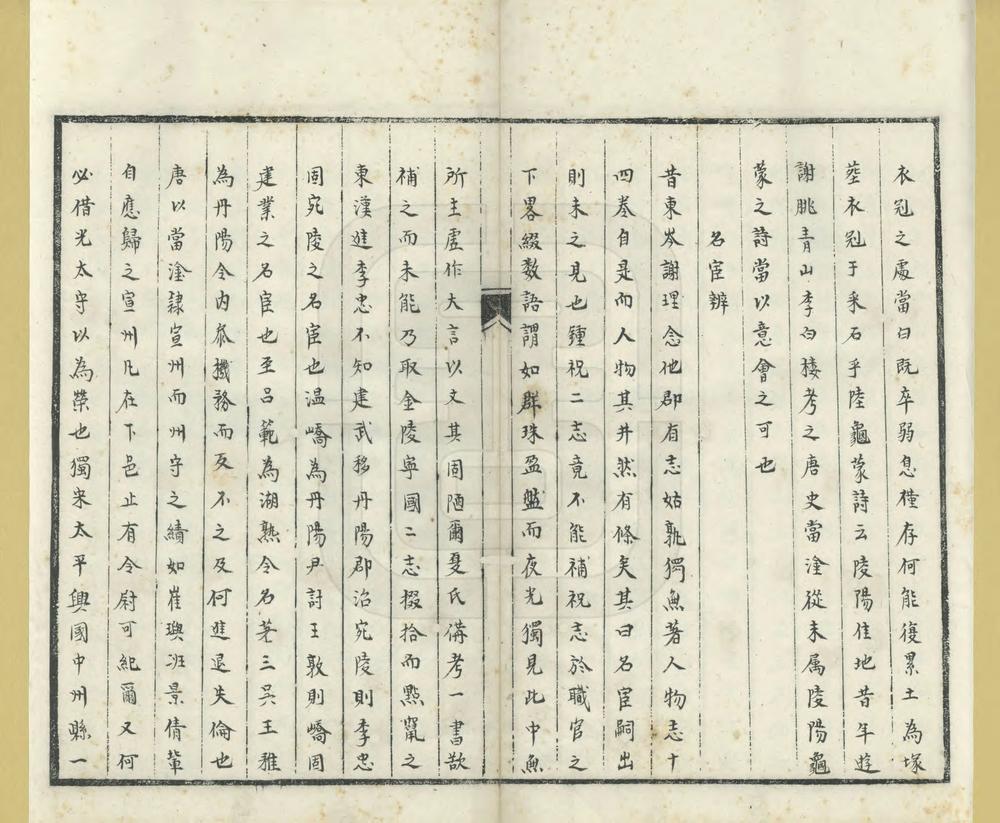 衣冠之處當曰既卒弱息僅存何能復累土為塚
塟衣冠于采石乎陸龜蒙詩云陵陽佳地昔年遊
謝朓青山李白樓考之唐史當塗從未属陵陽龜
蒙之詩當以意會之可也
名宦辨
昔東岑謝理念他郡有志姑孰獨無著人物志十
四卷自是而人物其井然有條矣其曰名宦嗣出
則未之見也鍾祝二志竟不能補祝志於職官之
下畧綴数語謂如群珠盈盤而夜光獨見此中無
所主虛作大言以文其固陋爾夏氏備考一書欲
補之而未能乃取金陵寧國二志掇拾而㸃竄之
東漢進李忠不知建武移丹陽郡治宛陵則李忠
固宛陵之名宦也温嶠為丹陽尹討王敦則嶠固
建業之名宦也至吕範為湖熟令名著三吳王雅
為丹陽令内叅機務而反不之及何進退失倫也
唐以當塗隸宣州而州守之績如崔璵班景倩軰
自應歸之宣州凡在下邑止有令尉可紀爾又何
必借光太守以為榮也獨宋太平興國中州縣一